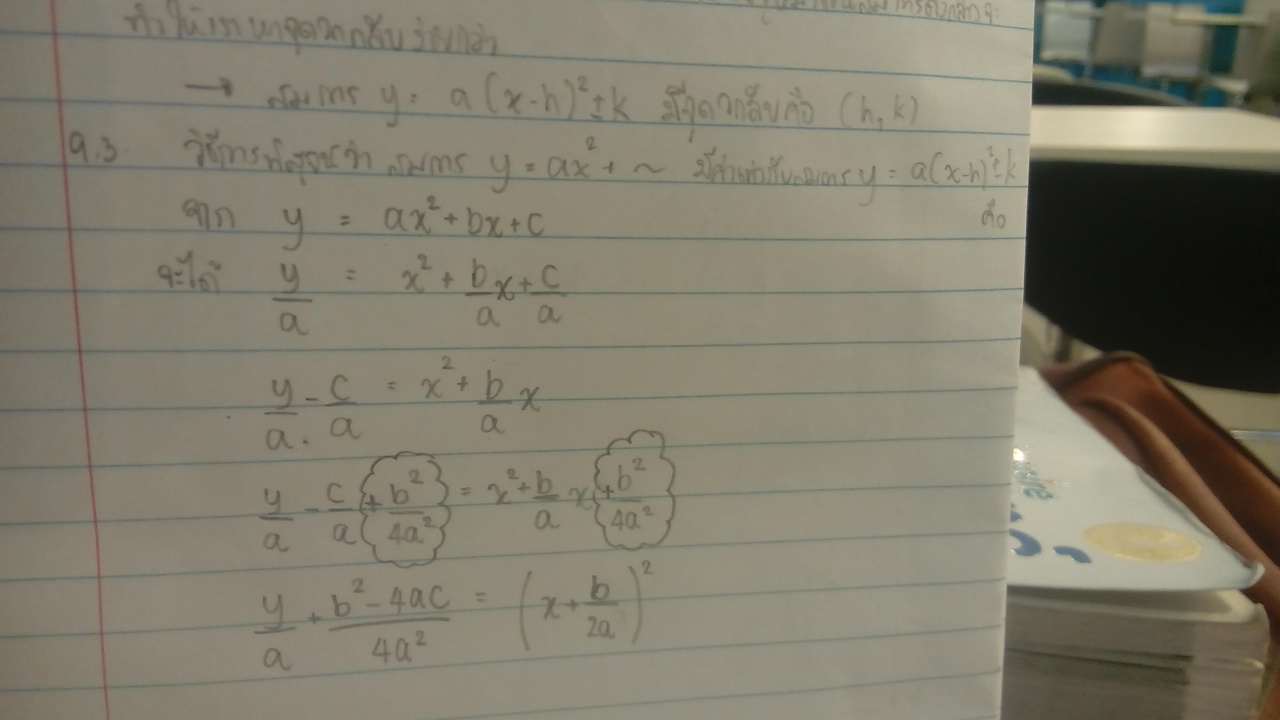 ทำให้เราหาจุดวกกลับง่ายกว่า
→ สมการ y = a(x-h)²±k มีจุดวกกลับคือ (h,k)
9.3 วิธีการพิสูจน์ว่า สมการ y = ax² + ~ มีค่าเท่ากับสมการ y = a(x-h)²±k
คือ
จาก y = ax² + bx + c
จะได้ y/a = x² + b/a x + c/a
y/a - c/a = x² + b/a x
y/a - c/a + b²/4a² = x² + b/a x + b²/4a²
y/a + b²-4ac/4a² = (x + b/2a)²